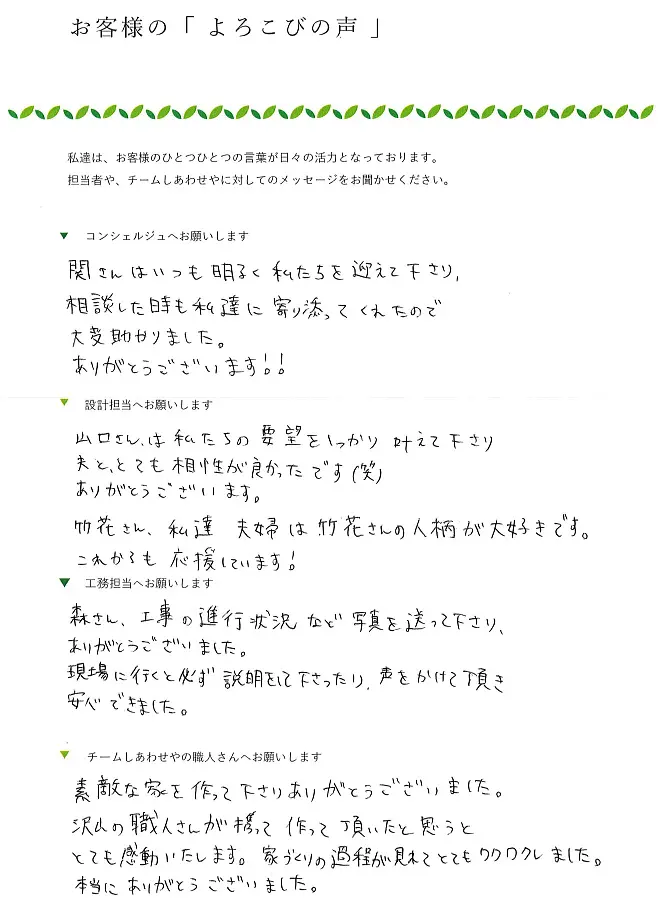 お客様の「 よろこびの声 」
私達は、お客様のひとつひとつの言葉が日々の活力となっております。
担当者や、チームしあわせやに対してのメッセージをお聞かせください。
▼ コンシェルジュへお願いします
関さんはいつも明るく私たちを迎えて下さり、
相談した時も私達に寄り添ってくれたので
大変助かりました。
ありがとうございます!!
▼ 設計担当へお願いします
山口さん、は私たちの要望をしっかり叶えて下さり
夫と、とても相性が良かったです(笑)
ありがとうございます。
竹花さん、私達 夫婦は竹花さんの人柄が大好きです。
これからも応援しています!
▼ 工務担当へお願いします
森さん、工事の進行状況など写真を送って下さり、
ありがとうございました。
現場に行くと必ず説明をして下さったり、声をかけて頂き
安心できました。
▼ チームしあわせやの職人さんへお願いします
素敵な家を作って下さりありがとうございました。
沢山の職人さんが携って作って頂いたと思うと
とても感動いたします。家づくりの過程が見れてとてもワクワクしました。
本当にありがとうございました。